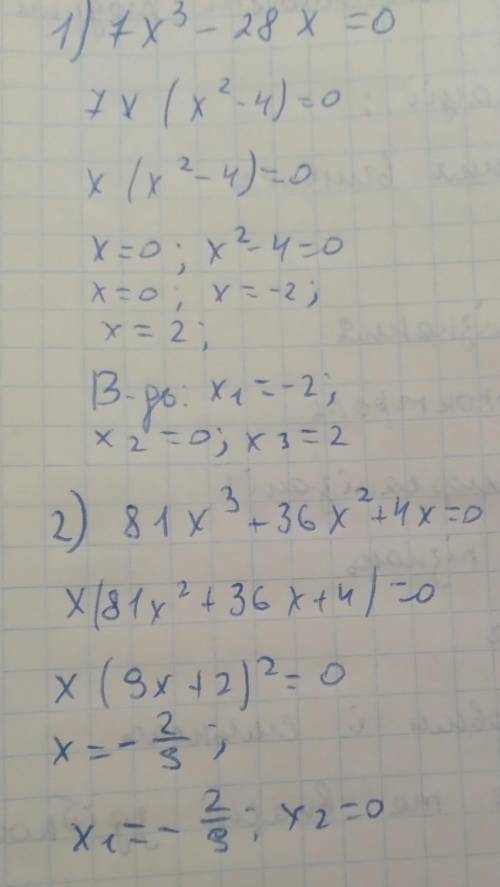 1) 7x³ - 28x = 0
7x (x² - 4) = 0
x (x² - 4) = 0
x = 0; x² - 4 = 0
x = 0; x = -2;
x = 2;
В-дь: x₁ = -2;
x₂ = 0; x₃ = 2
2) 81x³ + 36x² + 4x = 0
x(81x² + 36x + 4) = 0
x (9x + 2)² = 0
x = -2/9;
x₁ = -2/9; x₂ = 0